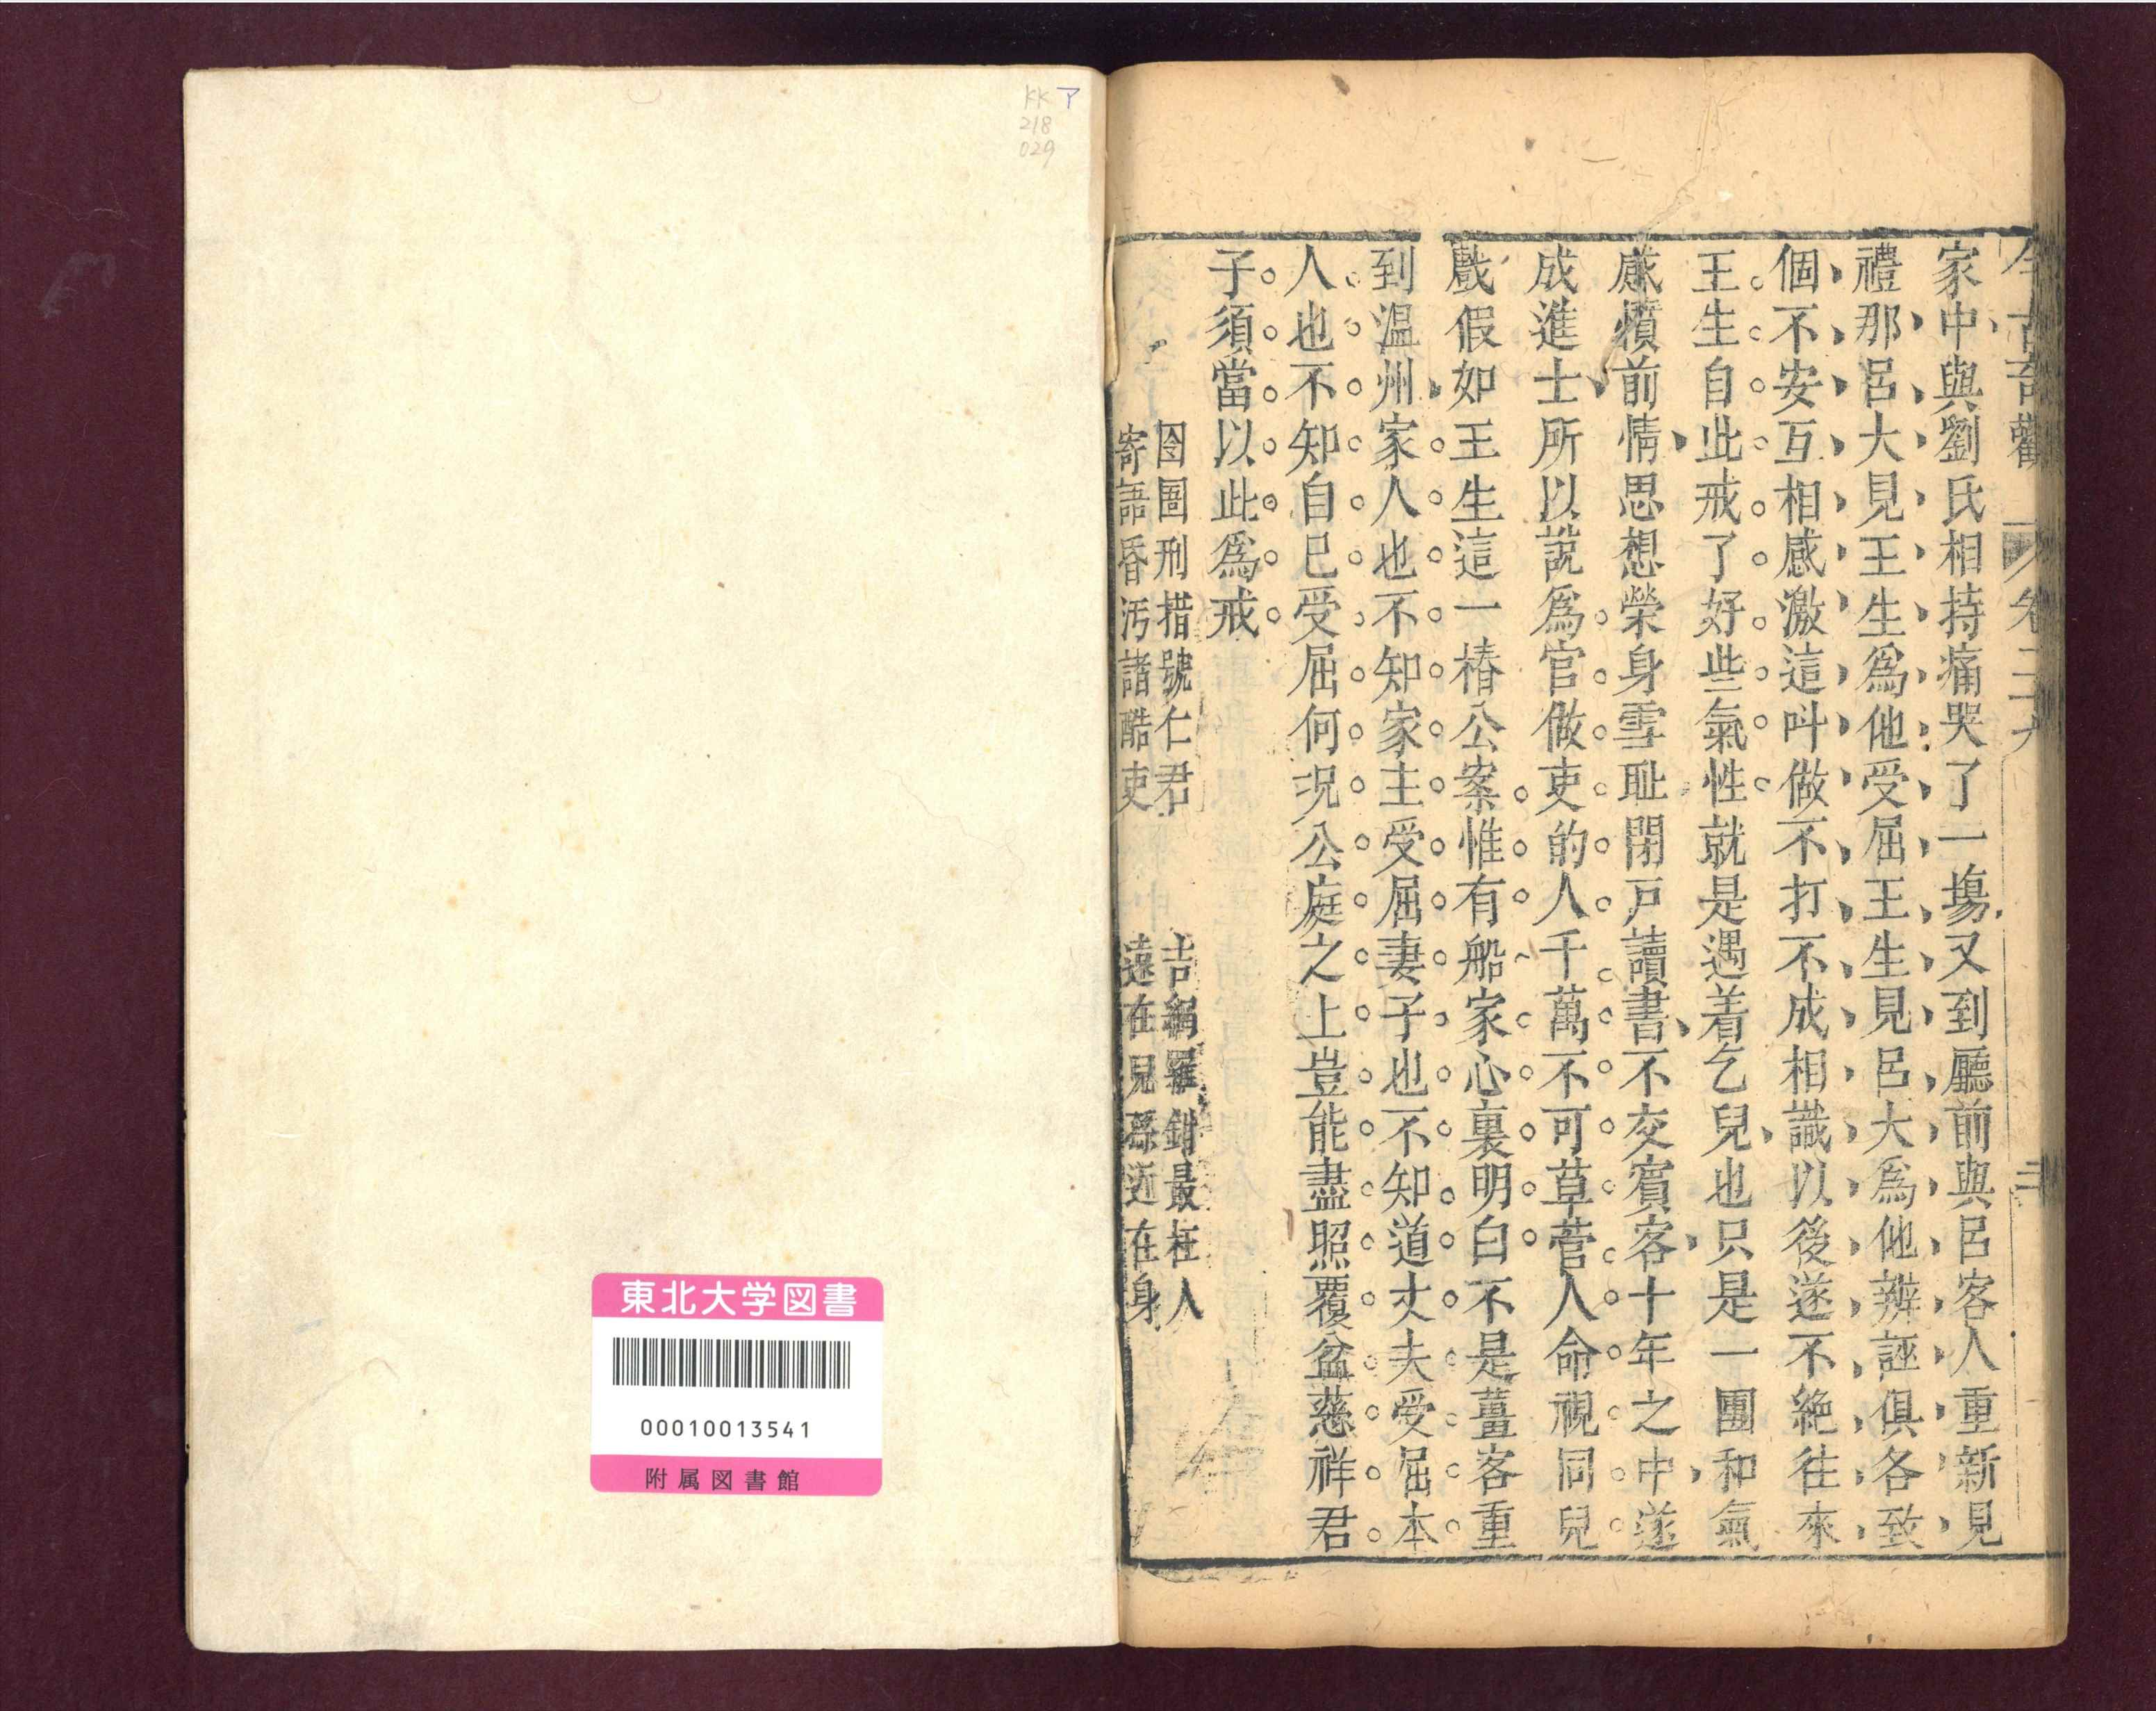 今古奇觀 卷二十九
家中與劉氏相持痛哭了一塲又到廳前與呂客人重新見
禮那呂大見王生爲他受屈王生見呂大爲他辨誣俱各致
個不安互相感激這叫做不打不成相識以後遂不絶往來
王生自此戒了好些氣性就是遇着乞兒也只是一團和氣
感憤前情思想榮身雪耻閉戸讀書不交賓客十年之中遂
成進士所以說爲官做吏的人千萬不可草菅人命視同兒
戲假如王生這一樁公案惟有船家心裏明白不是薑客重
到温州家人也不知家主受屈妻子也不知道丈夫受屈本
人也不知自已受屈何况公庭之上豈能盡照覆盆慈祥君
子須當以此爲戒
囹圄刑措號仁君 吉網羅鉗最枉人
寄語昏汚諸酷吏 遠在兒孫近在身
KK ア
218
029
東北大学図書
00010013541
附属図書館